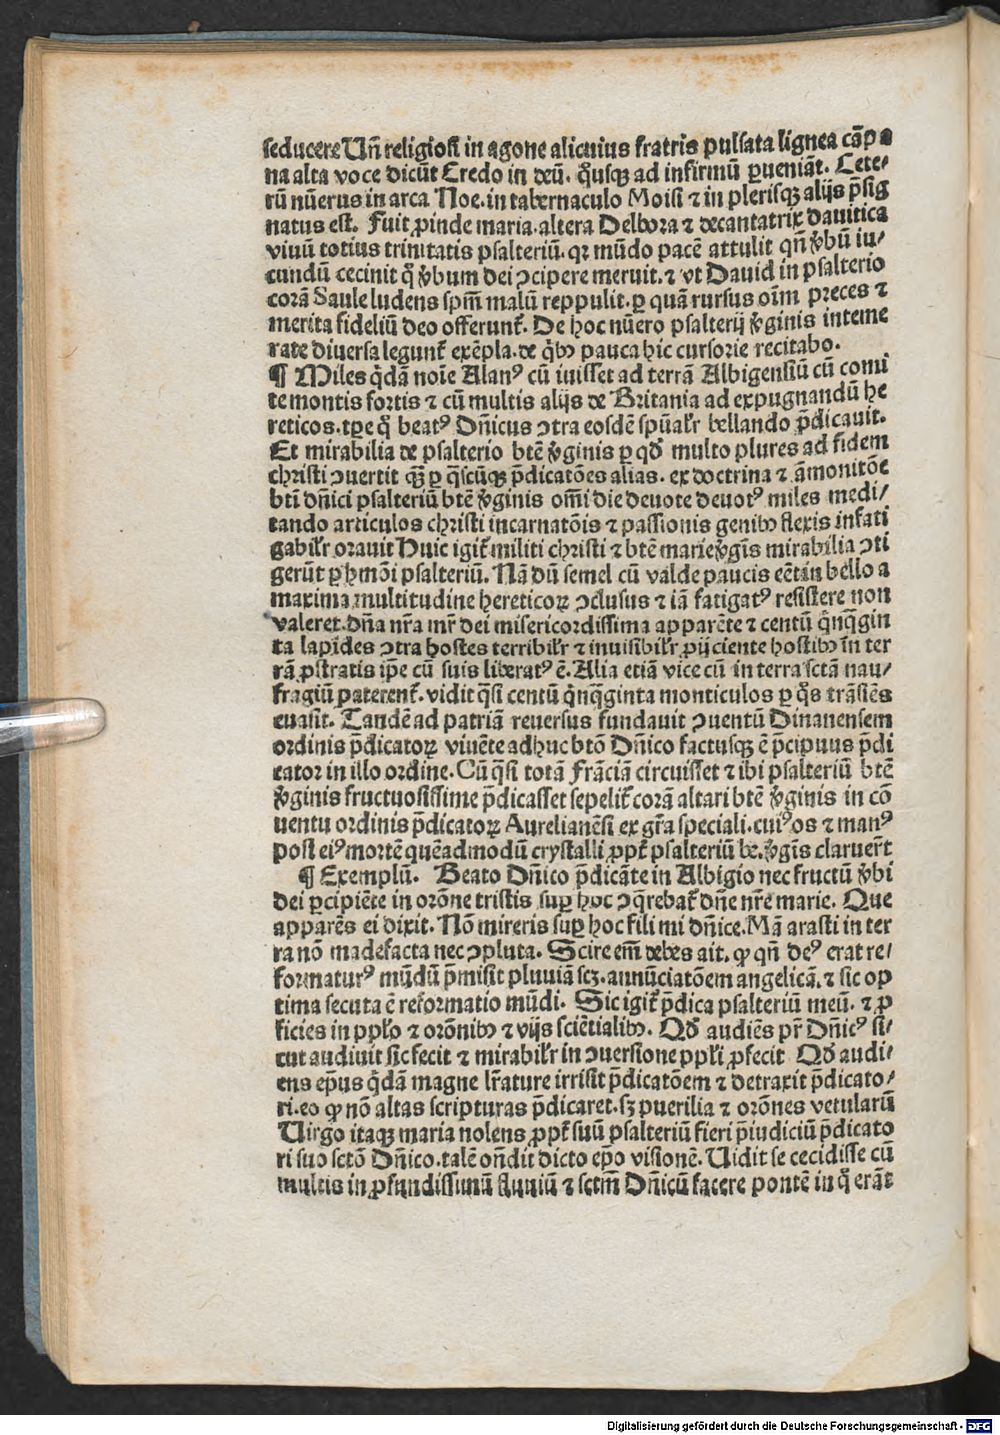 seducere Vñ religiosi in agone alicuius fratris pulsata lignea cãpa
na alta voce dicũt Credo in deũ. q̃usqꝫ ad infirmũ ꝑueniãt. Cete⸗
rũ nũerus in arca Noe. in tabernaculo Moisi ⁊ in plerisqꝫ alijs p̃sig
natus est. Fuit ꝓinde maria. altera Delbora ⁊ decantatrix dauitica
viuũ totius trinitatis psalteriũ. qꝛ mũdo pacẽ attulit qñ ꝟbũ iu⸗
cundũ cecinit q̃ ꝟbum dei ↄcipere meruit. ⁊ vt Dauid in psalterio
corã Saule ludens spm̃ malũ reppulit. ꝑ quã rursus oĩm preces ⁊
merita fideliũ deo offerunt᷑. De hoc nũero psalterij ꝟginis inteme
rate diuersa legunt᷑ exẽpla. de q̃bꝰ pauca hic cursorie recitabo.
¶ Miles q̃dã noĩe Alanꝰ cũ iuisset ad terrã Albigensiũ cũ comi
te montis fortis ⁊ cũ multis alijs de Britania ad expugnandũ he
reticos. tꝑe q̃ beatꝰ Dñicus ↄtra eosdẽ spũalr̃ bellando p̃dicauit.
Et mirabilia de psalterio btẽ ꝟginis ꝑ qđ multo plures ad fidem
christi ↄuertit qꝫ̃ ꝑ q̃scũqꝫ p̃dicatões alias. ex doctrina ⁊ ãmonitõe
bti dñici psalteriũ btẽ ꝟginis om̃i die deuote deuotꝰ miles medi⸗
tando articulos christi incarnatõis ⁊ passionis genibꝰ flexis infati
gabilr̃ orauit Huic igit᷑ militi christi ⁊ btẽ marie ꝟgĩs mirabilia ↄti
gerũt ꝑ hmõi psalteriũ. Nã dũ semel cũ valde paucis eẽt in bello a
maxima multitudine hereticoꝝ ↄclusus ⁊ iã fatigatꝰ resistere non
valeret. dña nr̃a mr̃ dei misericordissima apparẽte ⁊ centũ q̃nq̃gin
ta lapides ↄtra hostes terribilr̃ ⁊ inuisibilr̃ ꝓijciente hostibꝰ in ter
rã ꝓstratis ip̃e cũ suis liberatꝰ ẽ. Alia etiã vice cũ in terra sctã nau⸗
fragiũ paterent᷑. vidit q̃si centũ q̃nq̃ginta monticulos ꝑ q̃s trãsiẽs
euasit. Tandẽ ad patriã reuersus fundauit ↄuentũ Dinanensem
ordinis p̃dicatoꝝ viuẽte adhuc btõ Dñico factusqꝫ ẽ p̃cipuus p̃di
cator in illo ordine. Cũ q̃si totã Frãciã circuisset ⁊ ibi psalteriũ btẽ
ꝟginis fructuosissime p̃dicasset sepelit᷑ corã altari btẽ ꝟginis in cõ
uentu ordinis p̃dicatoꝝ Aurelianẽsi ex gr̃a speciali. cuiꝰ os ⁊ manꝰ
post eiꝰ mortẽ quẽadmodũ crystalli ꝓpt᷑ psalteriũ be. ꝟgĩs claruer̃t
¶ Exemplũ. Beato Dñico p̃dicãte in Albigio nec fructũ ꝟbi
dei ꝑcipiẽte in orõne tristis suꝑ hoc ↄq̃rebat᷑ dñe nr̃e marie. Que
apparẽs ei dixit. Nõ mireris suꝑ hoc fili mi dñice. Mã arasti in ter
ra nõ madefacta nec ↄpluta. Scire em̃ debes ait. ꝙ qñ deꝰ erat re⸗
formaturꝰ mũdũ p̃misit pluuiã scꝫ. annũciatõem angelicã. ⁊ sic op
tima secuta ẽ reformatio mũdi. Sic igit᷑ p̃dica psalteriũ meũ. ⁊ ꝓ
ficies in ppło ⁊ orõnibꝰ ⁊ vijs sciẽtialibꝰ. Qđ audiẽs pr̃ Dñicꝰ si⸗
cut audiuit sic fecit ⁊ mirabilr̃ in ↄuersione ppłi ꝓfecit Qđ audi⸗
ens ep̃us q̃dã magne lr̃ature irrisit p̃dicatõem ⁊ detraxit p̃dicato⸗
ri. eo ꝙ nõ altas scripturas p̃dicaret. sꝫ puerilia ⁊ orõnes vetularũ
Virgo itaqꝫ maria nolens ꝓpt᷑ suũ psalteriũ fieri p̃iudiciũ p̃dicato
ri suo sctõ Dñico. talẽ oñdit dicto ep̃o visionẽ. Uidit se cecidisse cũ
multis in ꝓfundissimũ fluuiũ ⁊ sctm̃ Dñicũ facere pontẽ in q̃ erãt
Digitalisierung gefördert durch die Deutsche Forschungsgemeinschaft - DFG